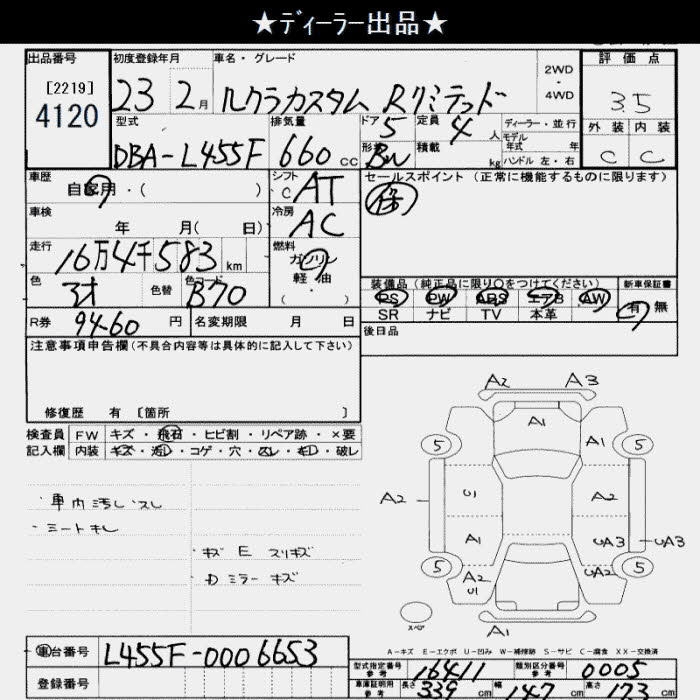 ★ディーラー出品★
出品番号 初度登録年月 車名・グレード 評価点
[2219]
4120
23 2月 ルクラカスタム Rリミテッド 2WD・4WD 3.5
型式 排気量 ドア 定員 ディーラー・並行 外装 内装
DBA-L455F 660cc 5 4人 モデル年式 年 C C
形状 積載 kg ハンドル 左・右
車歴 シフト セールスポイント (正常に機能するものに限ります)
自家用・( ) C AT
車検 冷房
年 月( 日) AC
走行 燃料
16万4千583km ガソリン
軽・油
( ・ )
色 色替 色コード 装備品(純正品に限り○をつけてください) 新車保証書
B70 PS PW ABS エアB AW 有 無
SR ナビ TV 本革
R券 9460円 名変期限 月 日 後日品
注意事項申告欄(不具合内容等は具体的に記入して下さい)
修復歴 有 [箇所 ]
検査員 FW キズ・飛石・ヒビ割・リペア跡・×要
記入欄 内装 キズ・汚レ・コゲ・穴・スレ・キレ・破レ
・車内汚レ スレ
・シートキレ
・キズ E スリキズ
・Dミラー キズ
A2 A3
A1
5 A1 5
A2 U1 A2
A1 UA3 UA3
5 A2 U1 UA2 5
スペア
A1
A-キズ E-エクボ U-凹み W-補修跡 S-サビ C-腐食 XX-交換済
車台番号 L455F-0006653
登録番号
型式指定番号 参考 16411 類別区分番号 参考 0005
車庫証明用 参考 長さ 339cm 幅 147cm 高さ 173cm